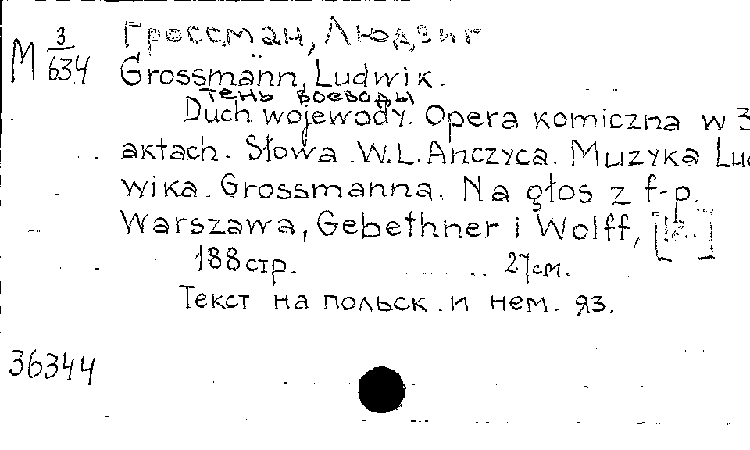 М 3/634
Гроссман, Людвиг
Grossmann, Ludwik.
тень воеводы
Duch wojewody. Opera komiczna w 3
aktach. Słowa W.L. Anczyca. Muzyka Lud
wika Grossmanna. Na głos z f-p.
Warszawa, Gebethner i Wolff,
188 стр. 27 см.
Текст на польск. и нем. яз.
36344